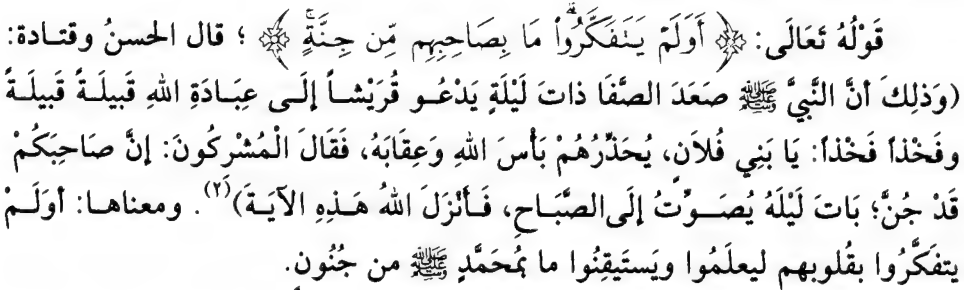 قَوْلُهُ تَعَالَى: ﴿ أَوَلَمْ يَتَفَكَّرُواْ مَا بِصَاحِبِهِم مِّن جِنَّةٍ ﴾ ؛ قال الحسنُ وقتـادة:
(وَذَلِكَ أنَّ النَّبِيَّ ﷺ صَعَدَ الصَّفَا ذاتَ لَيْلَةٍ يَدْعُـو قُرَيْشـاً إلَـى عِبَـادَةِ اللهِ قَبِيلَـةً قَبِيلَـةً
وفَخْذاً فَخْذاً: يَا بَنِي فُلاَنٍ، يُحَذِّرُهُمْ بَأْسَ اللهِ وَعِقَابَهُ، فَقَالَ الْمُشْرِكُونَ: إنَّ صَاحِبَكُمْ
قَدْ جُنَّ؛ بَاتَ لَيْلَهُ يُصَـوِّتُ إلَى الصَّبَـاحِ، فَـأَنْزَلَ اللهُ هَـذِهِ الآيَـةَ)(٢). ومعناهـا: أوَلَـمْ
يتفَكَّرُوا بقُلوبهم ليعلَمُوا ويَستَيقِنُوا ما بمُحَمَّدٍ ﷺ من جُنُونٍ.